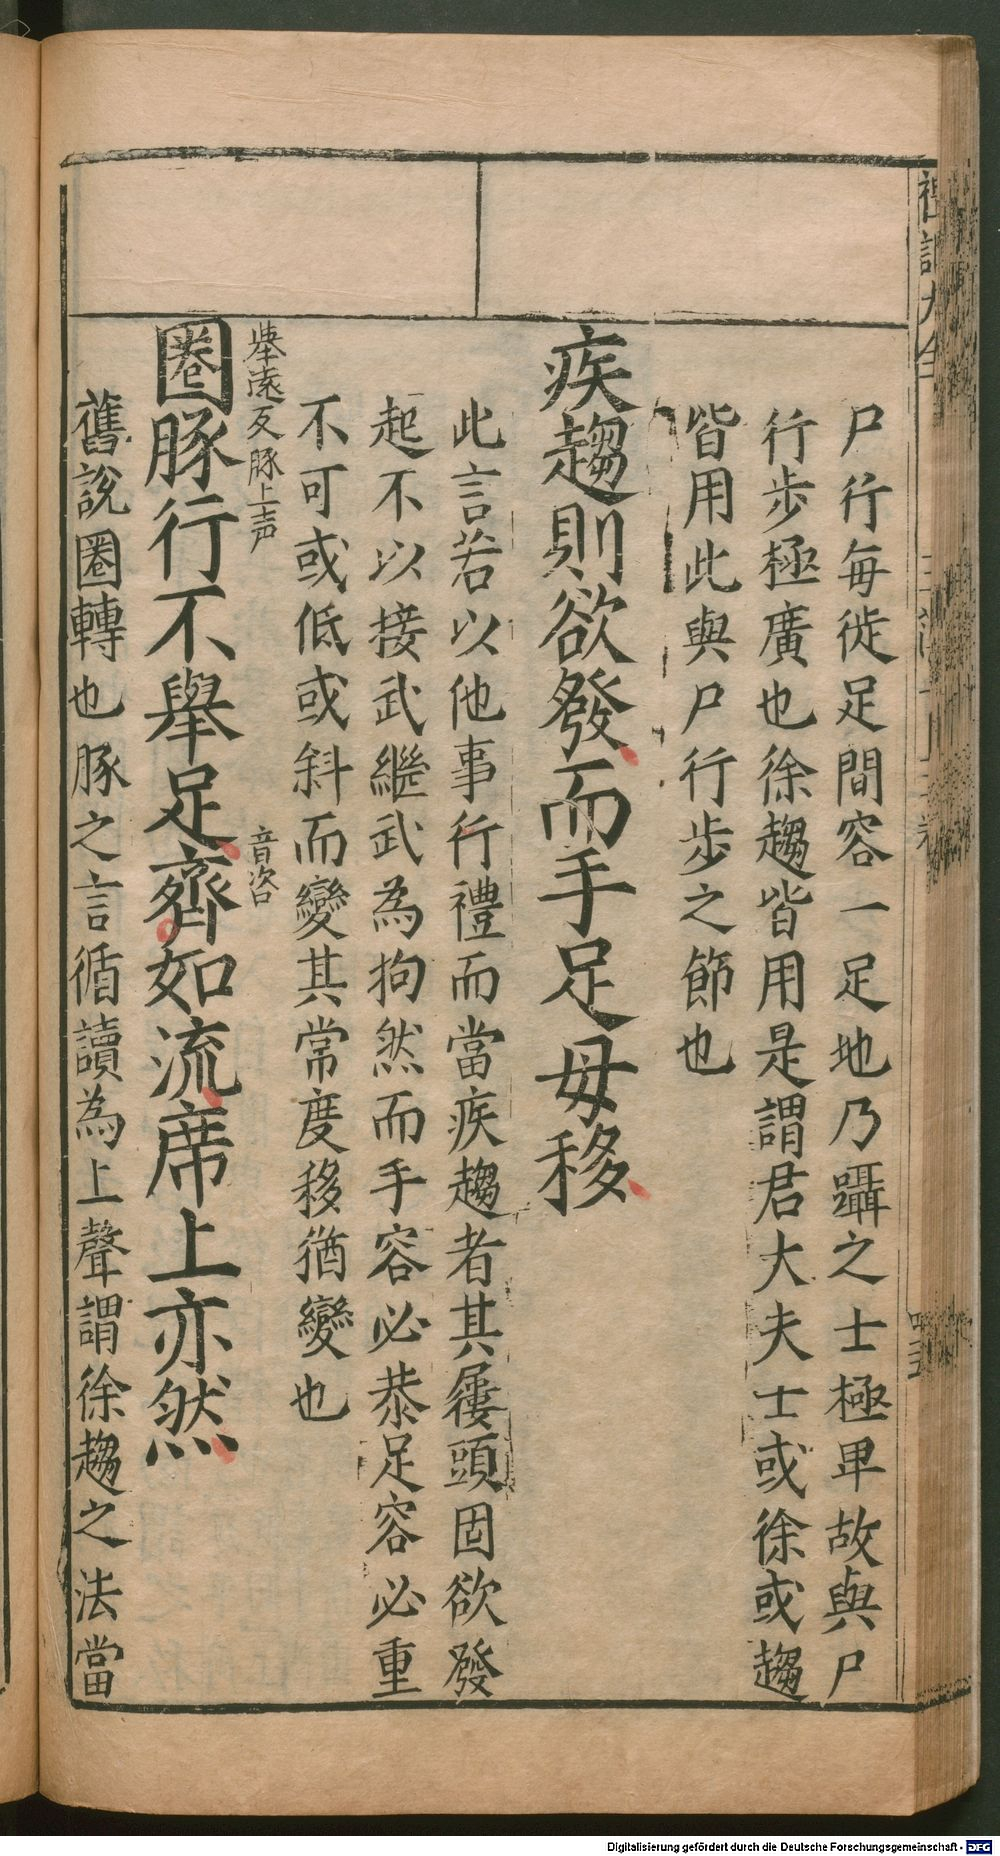 尸行每徙足間容一足地乃躡之士極卑故與尸
行步極廣也徐趨皆用是謂君大夫士或徐或趨
皆用此與尸行步之節也
疾趨則欲發而手足毋移
此言若以他事行禮而當疾趨者其屨頭固欲發
起不以接武繼武為拘然而手容必恭足容必重
不可或低或斜而變其常度移猶變也
舉遠反豚上声
音咨
圈豚行不舉足齊如流席上亦然
舊說圈轉也豚之言循讀為上聲謂徐趨之法當
Digitalisierung gefördert durch die Deutsche Forschungsgemeinschaft - DFG